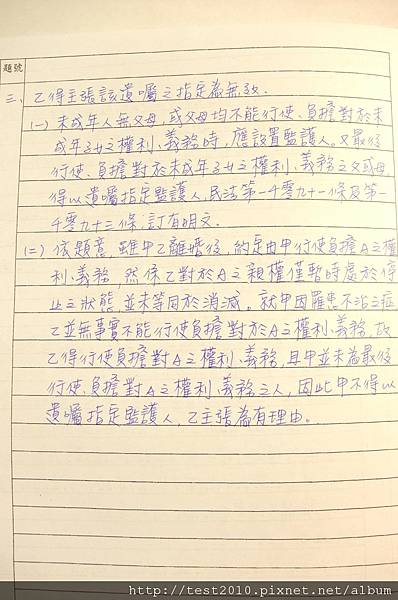 題號
三、乙得主張該遺囑之指定為無效.
(一) 未成年人無父母,或父母均不能行使、負擔對於未
成年子女之權利、義務時,應設置監護人。又最後
行使、負擔對於未成年子女之權利、義務之父或母,
得以遺囑指定監護人,民法第一千零九十一條及第一
千零九十三條,訂有明文.
(二) 依題意,雖甲乙離婚後,約定由甲行使負擔A之權
利、義務,然係乙對於A之親權僅暫時處於停
止之狀態,並未等同於消滅。就甲因罹患不治之症,
乙並無事實不能行使負擔對於A之權利、義務,故
乙得行使負擔對A之權利、義務,且甲並未為最後
行使、負擔對A之權利、義務之人,因此甲不得以
遺囑指定監護人,乙主張為有理由。
http://test2010.pixnet.net/album